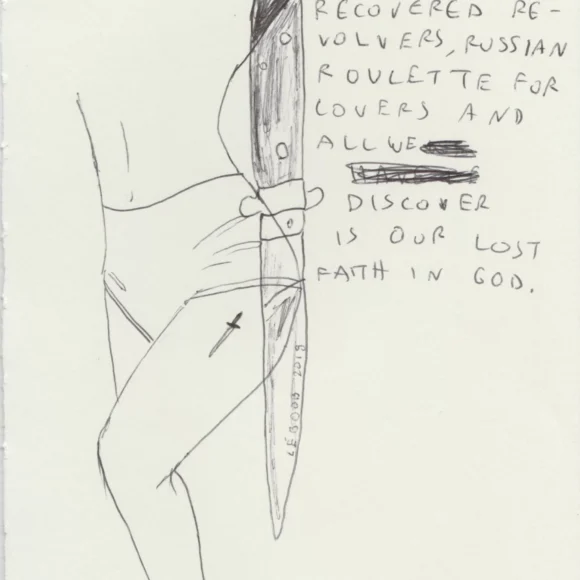 RECOVERED RE-
VOLVERS, RUSSIAN
ROULETTE FOR
LOVERS AND
ALL WE
DISCOVER
IS OUR LOST
FAITH IN GOD.
LEBOOB 2019